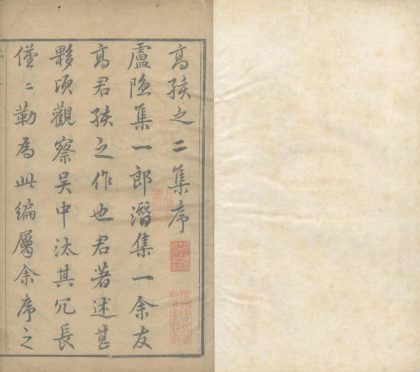 高孩之二集序
盧隐集一郎潛集一余友
高君孩之作也君著述甚
夥頃觀察吴中汰其冗長
僅〻勒爲此編屬余序之